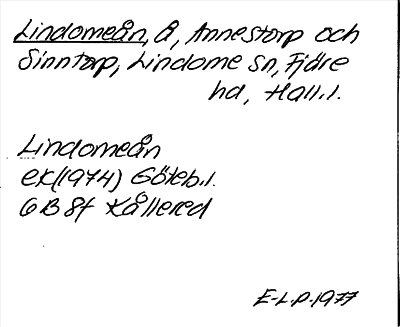 Lindomeån, å, Annestorp och
Sinntorp, Lindome sn, Fjäre
hd, Hall.l.
Lindomeån
ek(1974) Göteb.l.
6B 8f Kållered
E-L.P.1977